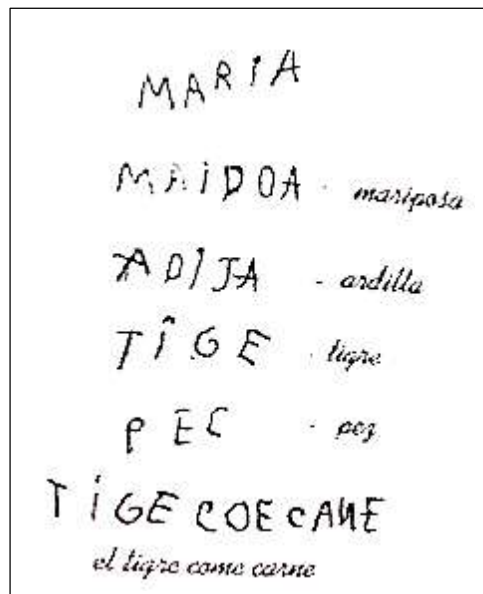 MARIA
MAIDOA - mariposa
ADIJA - ardilla
TIGE - tigre
PEC - pez
TIGE COE CANE
el tigre come carne